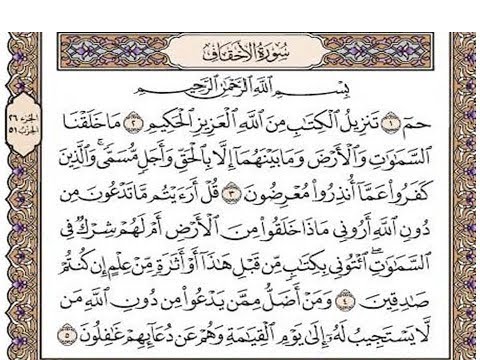 سُورَةُ الأَحْقَافِ
الجزء ٢٦
الحزب ٥١
بِسْمِ اللَّهِ الرَّحْمَٰنِ الرَّحِيمِ
حمٓ ١ تَنزِيلُ الْكِتَٰبِ مِنَ اللَّهِ الْعَزِيزِ الْحَكِيمِ ٢ مَا خَلَقْنَا
السَّمَٰوَٰتِ وَالْأَرْضَ وَمَا بَيْنَهُمَا إِلَّا بِالْحَقِّ وَأَجَلٍ مُّسَمًّى ۚ وَالَّذِينَ
كَفَرُوا۟ عَمَّا أُنذِرُوا۟ مُعْرِضُونَ ٣ قُلْ أَرَءَيْتُم مَّا تَدْعُونَ مِن
دُونِ اللَّهِ أَرُونِي مَاذَا خَلَقُوا۟ مِنَ الْأَرْضِ أَمْ لَهُمْ شِرْكٌ فِي
السَّمَٰوَٰتِ ۖ ائْتُونِي بِكِتَٰبٍ مِّن قَبْلِ هَٰذَا أَوْ أَثَٰرَةٍ مِّنْ عِلْمٍ إِن كُنتُمْ
صَٰدِقِينَ ٤ وَمَنْ أَضَلُّ مِمَّن يَدْعُوا۟ مِن دُونِ اللَّهِ مَن
لَّا يَسْتَجِيبُ لَهُ إِلَىٰ يَوْمِ الْقِيَٰمَةِ وَهُمْ عَن دُعَآئِهِمْ غَٰفِلُونَ ٥